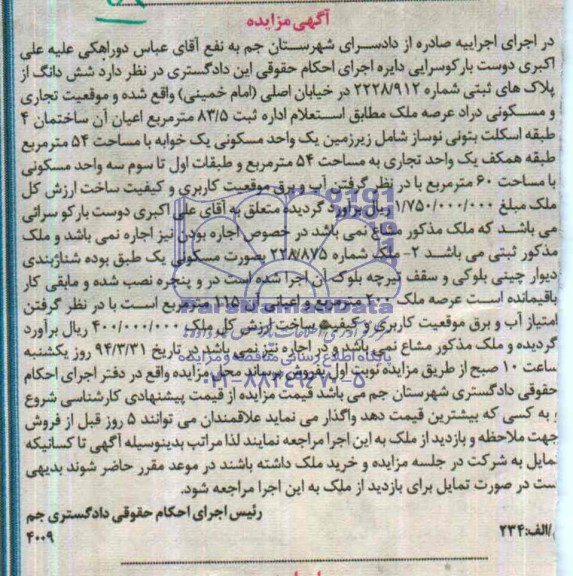 آگهی مزایده
در اجرای اجراییه صادره از دادسرای شهرستان جم به نفع آقای عباس دوراهکی علیه علی
اکبری دوست بارکوسرایی دایره اجرای احکام حقوقی این دادگستری در نظر دارد شش دانگ از
پلاک های ثبتی شماره ۲۲۲۸/۹۱۲ در خیابان اصلی (امام خمینی) واقع شده و موقعیت تجاری
و مسکونی دراد عرصه ملک مطابق استعلام اداره ثبت ۸۳/۵ مترمربع اعیان آن ساختمان ۴
طبقه اسکلت بتونی نوساز شامل زیرزمین یک واحد مسکونی یک خوابه با مساحت ۵۴ مترمربع
طبقه همکف یک واحد تجاری به مساحت ۵۴ مترمربع و طبقات اول تا سوم سه واحد مسکونی
با مساحت ۶۰ مترمربع با در نظر گرفتن آب و برق موقعیت کاربری و کیفیت ساخت ارزش کل
ملک مبلغ ۱/۷۵۰/۰۰۰/۰۰۰ ریال برآورد گردیده متعلق به آقای علی اکبری دوست بارکو سرائی
می باشد که ملک مذکور مشاع نمی باشد در خصوص اجاره بودن نیز اجاره نمی باشد و ملک
مذکور ثبتی می باشد ۲- ملک شماره ۲۲۸/۸۷۵ بصورت مسکونی یک طبق بوده شناژبندی
دیوار چینی بلوکی و سقف تیرچه بلوک آن اجرا شده است در و پنجره نصب شده و مابقی کار
باقیمانده است عرصه ملک ۲۰۰ مترمربع و اعیانی آن ۱۱۵ مترمربع است با در نظر گرفتن
امتیاز آب و برق موقعیت کاربری و کیفیت ساخت ارزش کل ملک ۴۰۰/۰۰۰/۰۰۰ ریال برآورد
گردیده و ملک مذکور مشاعی نمی باشد و در اجاره نیز نمی باشد در تاریخ ۹۴/۳/۳۱ روز یکشنبه
ساعت ۱۰ صبح از طریق مزایده نوبت اول بفروش برساند محل مزایده واقع در دفتر اجرای احکام
حقوقی دادگستری شهرستان جم می باشد قیمت مزایده از قیمت پیشنهادی کارشناسی شروع
و به کسی که بیشترین قیمت دهد واگذار می نماید علاقمندان می توانند ۵ روز قبل از فروش
جهت ملاحظه و بازدید از ملک به این اجرا مراجعه نمایند لذا مراتب بدینوسیله آگهی تا کسانیکه
تمایل به شرکت در جلسه مزایده و خرید ملک داشته باشند در موعد مقرر حاضر شوند بدیهی
ست در صورت تمایل برای بازدید از ملک به این اجرا مراجعه شود.
رئیس اجرای احکام حقوقی دادگستری جم
/الف:۲۳۴
۴۰۰۹
ParsNamadData
پایگاه اطلاع رسانی مناقصه و مزایده
۰۲۱-۸۸۳۴۹۶۷۰-۵